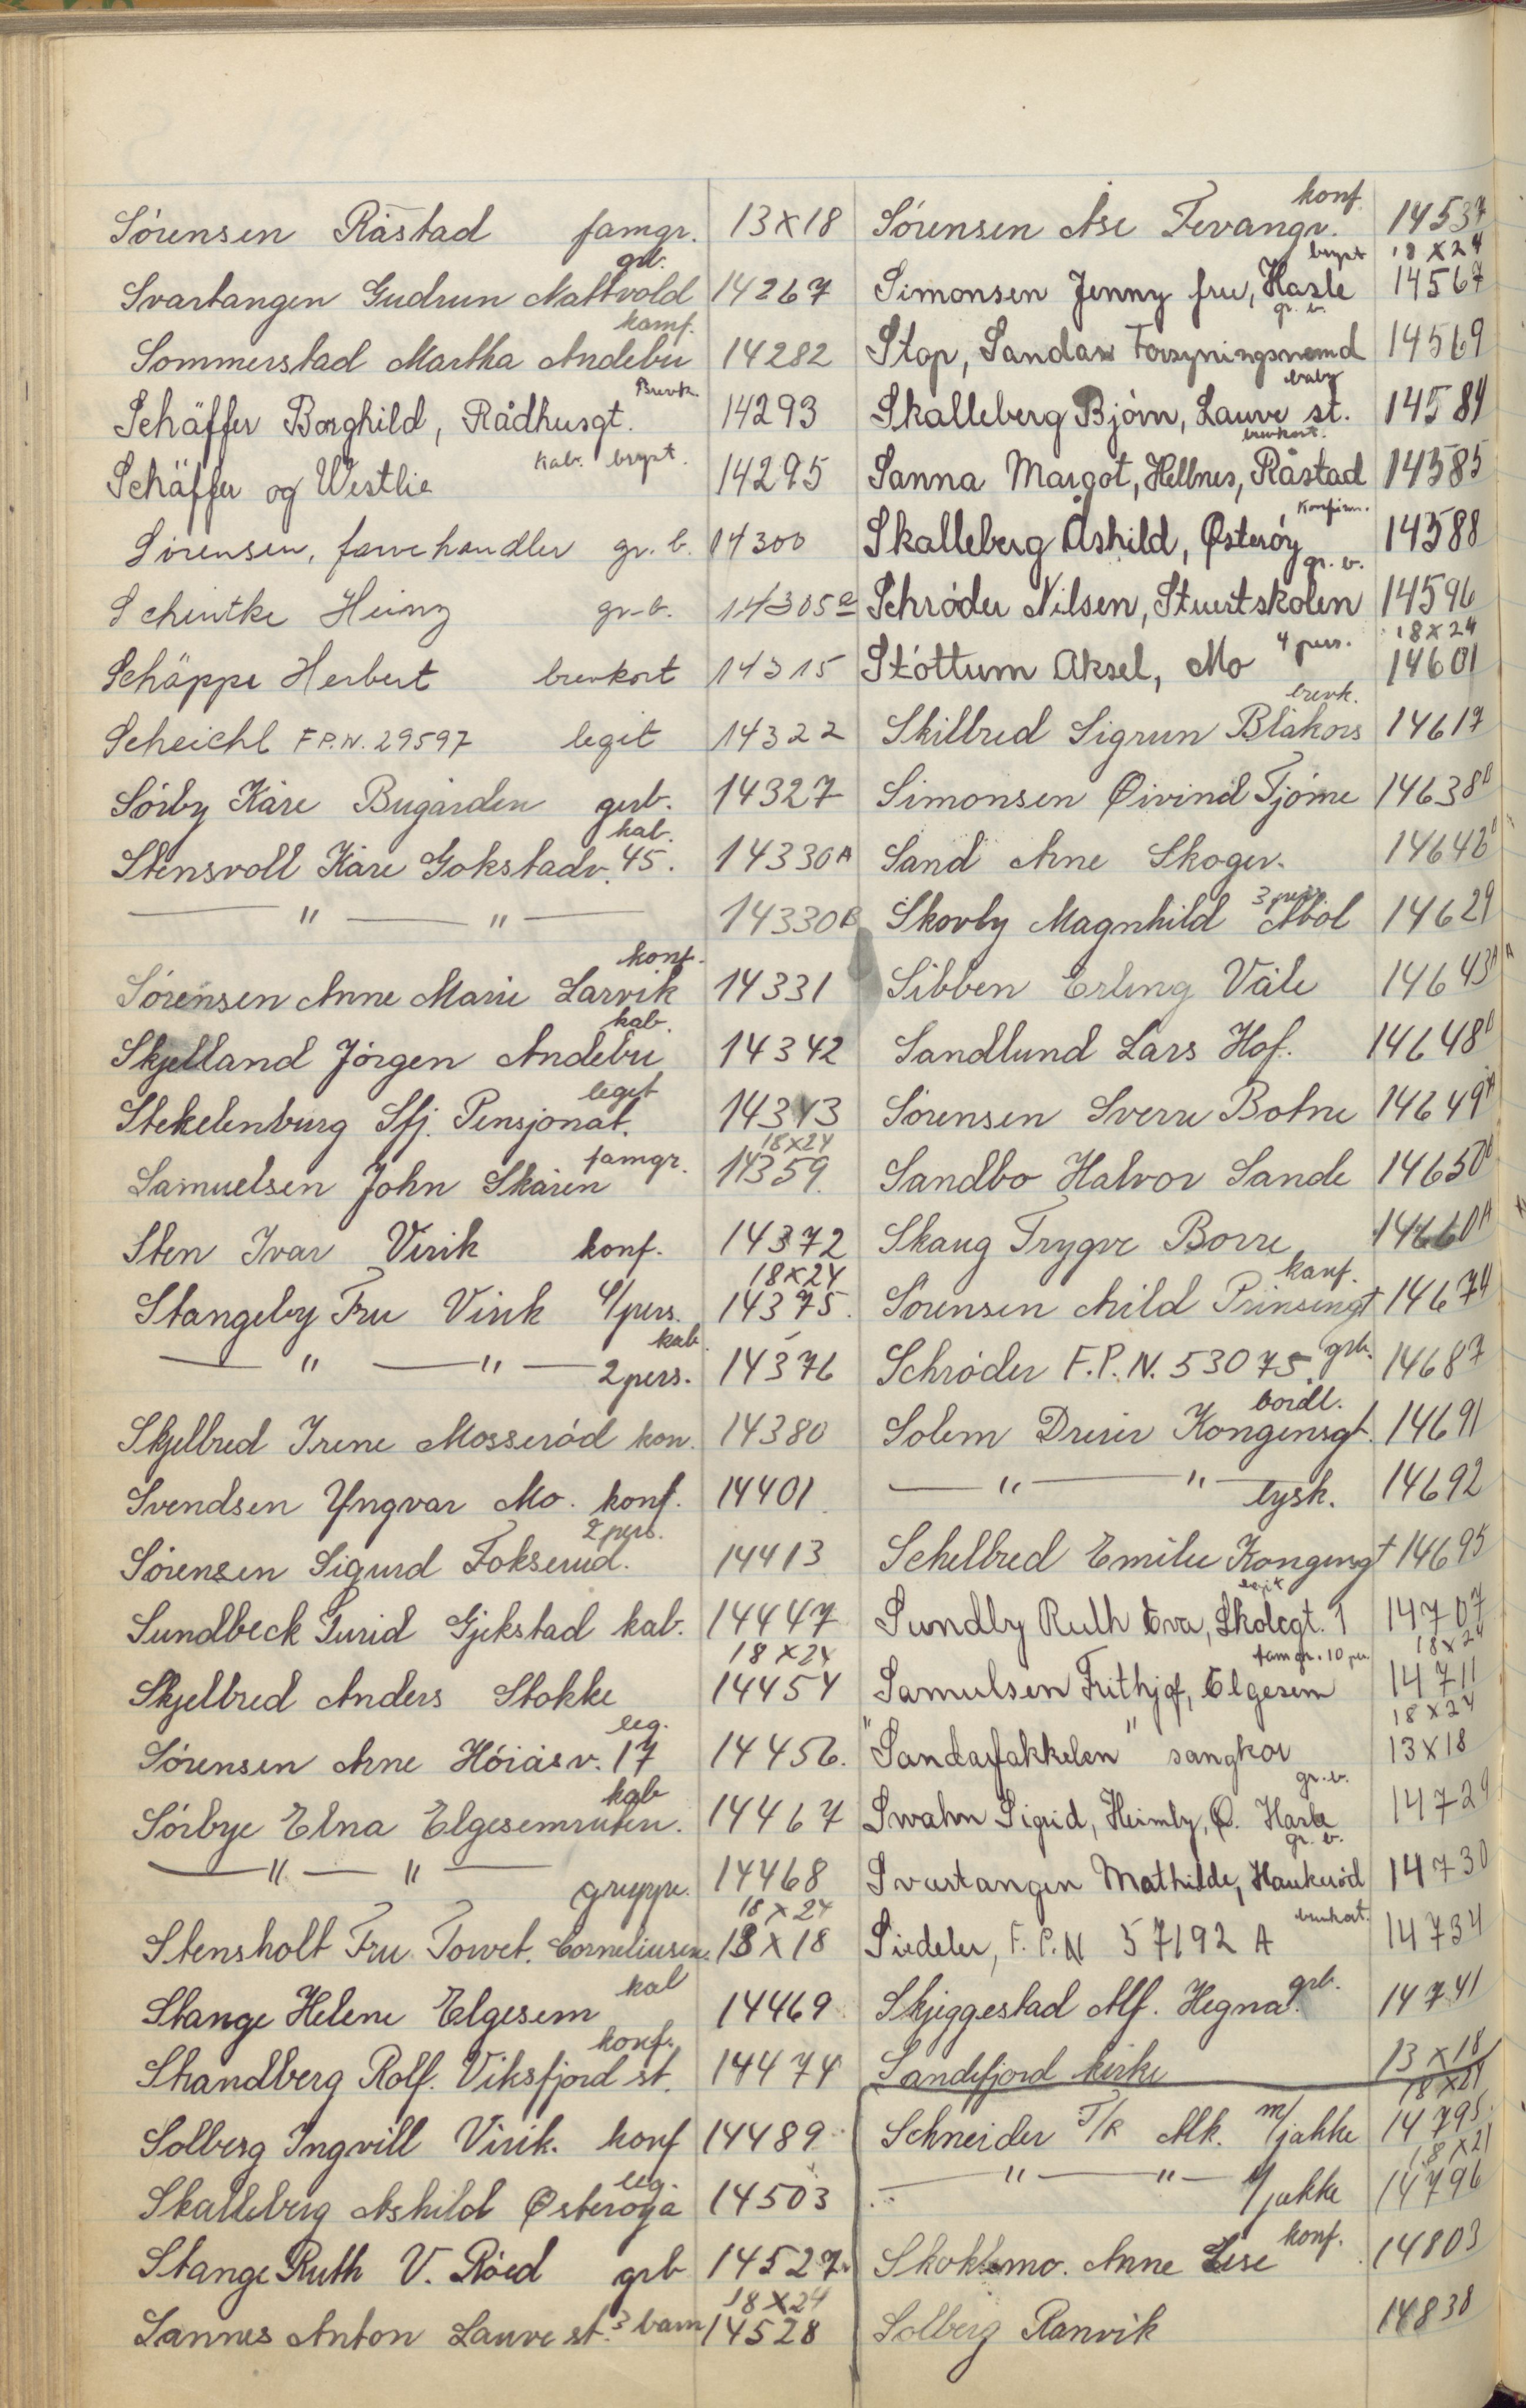 Sörensen Råstad famgr. 13x18
Svartangen Gudrun Nattvold grb. 14267
Sommerstad Martha Andebu konf. 14282
Schäffer Borghild, Rådhusgt. Brevk. 14293
Schäffer og Westlie kab. brypt. 14295
Sörensen, farvehandler gr. b. 14300
Schintke Heinz gr-b. 14305
Schäppe Herbert brevkort 14315
Scheichl F.P.N. 29597 legit 14322
Sörby Kåre Bugården grb. 14327
Stensvoll Kåre Gokstadv. 45. kab. 14330A
— " — " — 14330B
Sörensen Anne Marie Larvik konf. 14331
Skjelland Jörgen Andebu kab. 14342
Stekelenburg Sfj. Pensjonat. legit 14343
Samuelsen John Skåren famgr. 18x24 14359.
Sten Ivar Virik konf. 14372
Stangeby Fru Virik 4/pers. 18x24 14375.
— " — " — 2 pers. kab. 14376
Skjelbred Irene Mosseröd kon. 14380
Svendsen Yngvar Mo. konf. 14401
Sörensen Sigurd Fokserud. 2 pers. 14413
Sundbeck Turid Gjekstad kab. 14447
Skjelbred Anders Stokke 18x24 14454
Sörensen Arne Höiåsv. 17 leg. 14456.
Sörbye Elna Elgesemruten. kab 14467
— " — " — gruppe. 14468
Stensholt Fru Torvet. Corneliusen. 18x24 13x18
Stange Helene Elgesem kab 14469
Strandberg Rolf. Viksfjord st. konf. 14474
Solberg Ingvill Virik. konf 14489
Skalleberg Åshild Østeröya leg. 14503
Stange Ruth V. Röed grb 14527
Sannes Anton Lauve st. 3 barn 18x24 14528
Sörensen Åse Tevangr. konf 14537
Simonsen Jenny fru, Hasle brypt 18x24 14567
Stop, Sandar Forsyningsnemd gr. b. 14569
Skalleberg Björn, Lauve st. baby 14584
Sanna Margot, Hellnes, Råstad brevkort. 14585
Skalleberg Åshild, Østeröy Konfirm. 14588
Schröder Nilsen, Stuertskolen gr. b. 14596
Stöttum Aksel, Mo 4 pers. 18x24 14601
Skilbred Sigrun Blåkors brevk. 14617
Simonsen Øivind Tjöme 14638
Sand Arne Skoger. 14646
Skovby Magnhild 3 pers 14629
Sibben Erling Våle 14643A
Sandlund Lars Hof. 14648
Sörensen Sverre Botne 14649A
Sandbo Halvor Sande 14650
Skaug Trygve Borre 14660A
Sörensen Arild Prinsengt konf. 14674
Schröder F.P.N. 53075. grb. 14687
Solem Dreier Kongensgt. bordl. 14691
— " — " — lysk. 14692
Schelbred Emilie Kongensgt 14695
Sundby Ruth Eva, Skolegt. 1 legit 14707
Samulsen Frithjof, Elgesem famgr. 10 per. 18x24 14711
"Sandarfakkelen" sangkor 18x24 13x18
Swahn Sigrid, Heimly, Ø. Hasle gr. b. 14729
Svartangen Mathilde, Haukeröd gr. b. 14730
Siedeler, F.P.N 57192 A brevkort. 14734
Skjeggestad Alf. Hegna. grb. 14741
Sandefjord kirke 13x18
Schneider T/R Alk. m/jakke 18x24 14795
— " — " — u/jakke 18x21 14796
Skoklemo. Anne Lise konf. 14803
Solberg Ranvik 14838